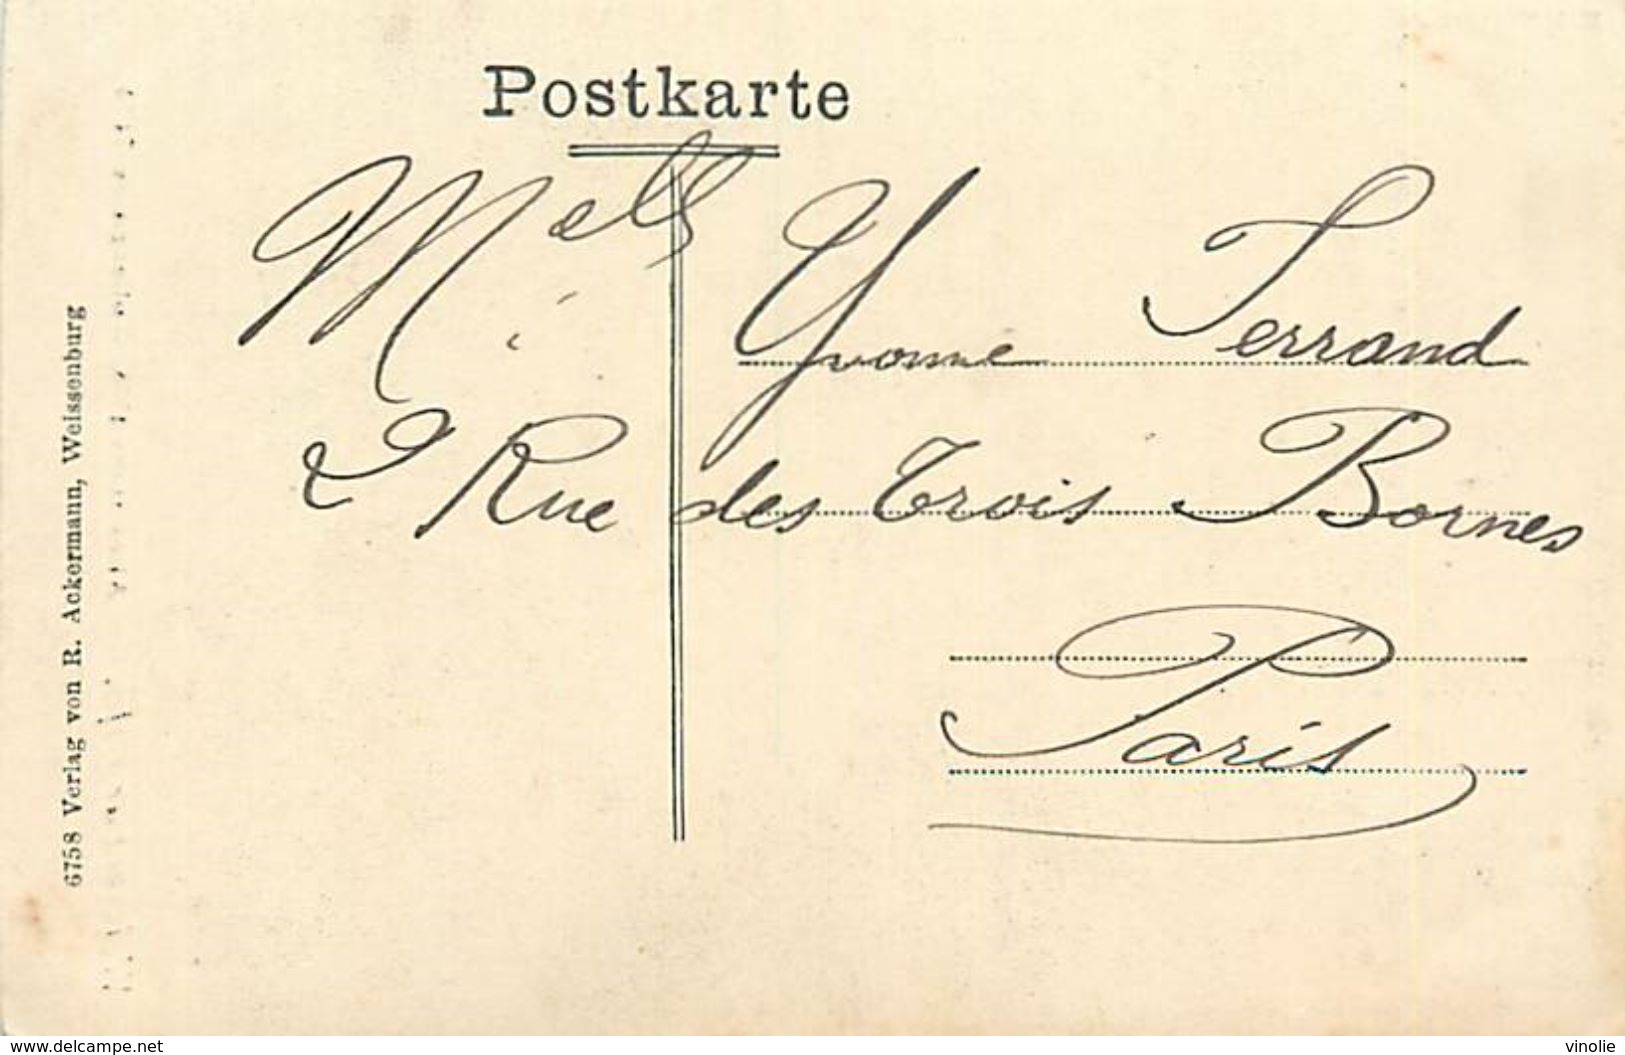 Postkarte
Melle Yvonne Ferrand
2 Rue des Trois Bornes
Paris
6758 Verlag von R. Ackermann, Weissenburg
www.delcampe.net
vinolie